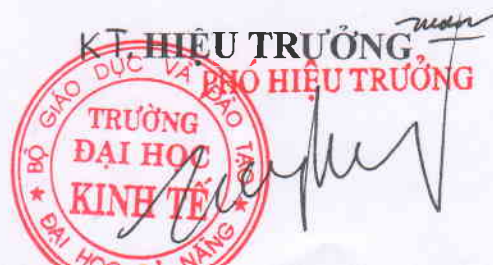 KT. HIỆU TRƯỞNG
PHÓ HIỆU TRƯỞNG
BỘ GIÁO DỤC VÀ ĐÀO TẠO
TRƯỜNG
ĐẠI HỌC
KINH TẾ
ĐẠI HỌC ĐÀ NẴNG